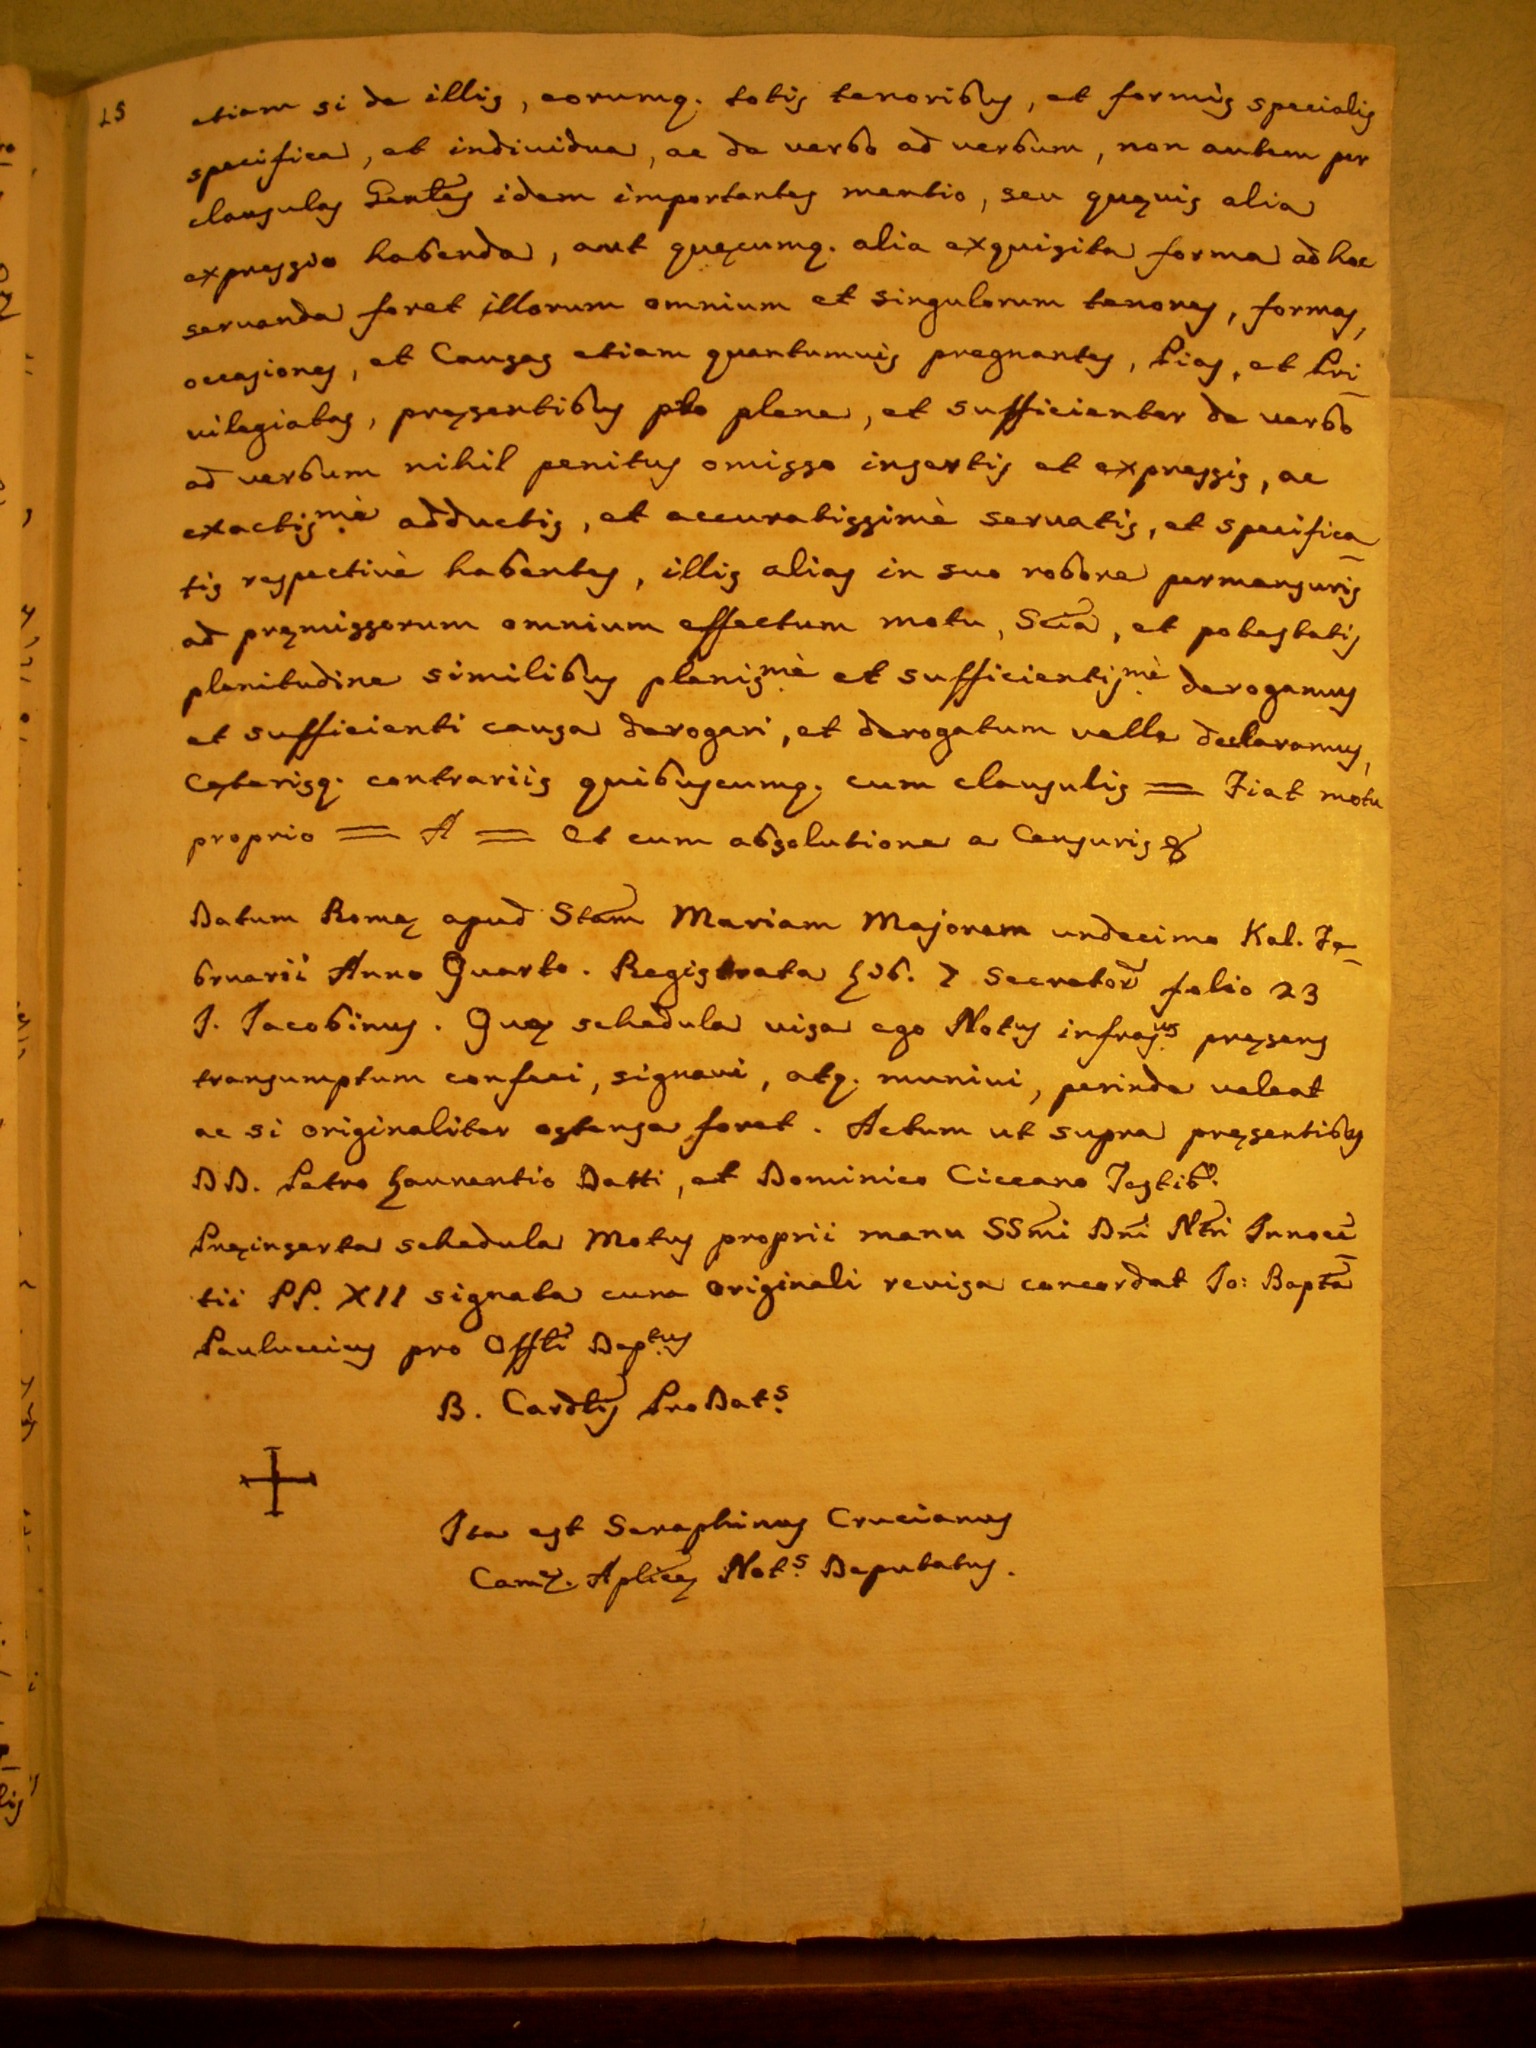 15
etiam si de illis, eorumq. totis tenoribus, et formis specialis
specifica, et individua, ac de verbo ad verbum, non autem per
clausulas Gen̄les idem importantes mentio, seu quęvis alia
expressio habenda, aut quęcumq. alia exquisita forma ad hoc
servanda foret illorum omnium et singulorum tenores, formas,
occasiones, et Causas etiam quantumvis pregnantes, Pias, et Pri
vilegiatas, pręsentibus pro plene, et sufficienter de verbo
ad verbum nihil penitus omisso insertis et expressis, ac
exactisᵐᵉ̀ adductis, et accuratissimè servatis, et specifica
tis respectivè habentes, illis alias in suo robore permansuris
ad pręmissorum omnium effectum motu, Scīa, et potestatis
plenitudine similibus plenisᵐᵉ̀ et sufficientisᵐᵉ̀ derogamus
et sufficienti causa derogari, et derogatum velle declaramus,
Cęterisq. contrariis quibuscumq. cum clausulis = Fiat motu
proprio = A = Et cum absolutione a Censuris &
Datum Romę apud Stām Mariam Majorem undecimo Kal. Fe
bruarii Anno Quarto. Registrata Lib. 7 Secretor̄ folio 23
J. Jacobinus. Quę schedula visa ego Notus infrasᵘˢ pręsens
transumptum confeci, signavi, atq. munivi, perinde valeat
ac si originaliter ostensa foret. Actum ut supra pręsentibus
DD. Petro Laurentio Datti, et Dominico Ciccano Testib9.
Pręinserta schedula Motus proprii manu SSm̄i Dn̄i Ntr̄i Innocē
tii PP. XII signata cum originali revisa concordat Jo: Baptā
Pauluccius pro Offtī Depᵗᵘˢ
B. Cardlis ProDatˢ
Ita est Seraphinus Crucianus
Camę. Aplicę Notˢ Deputatus.